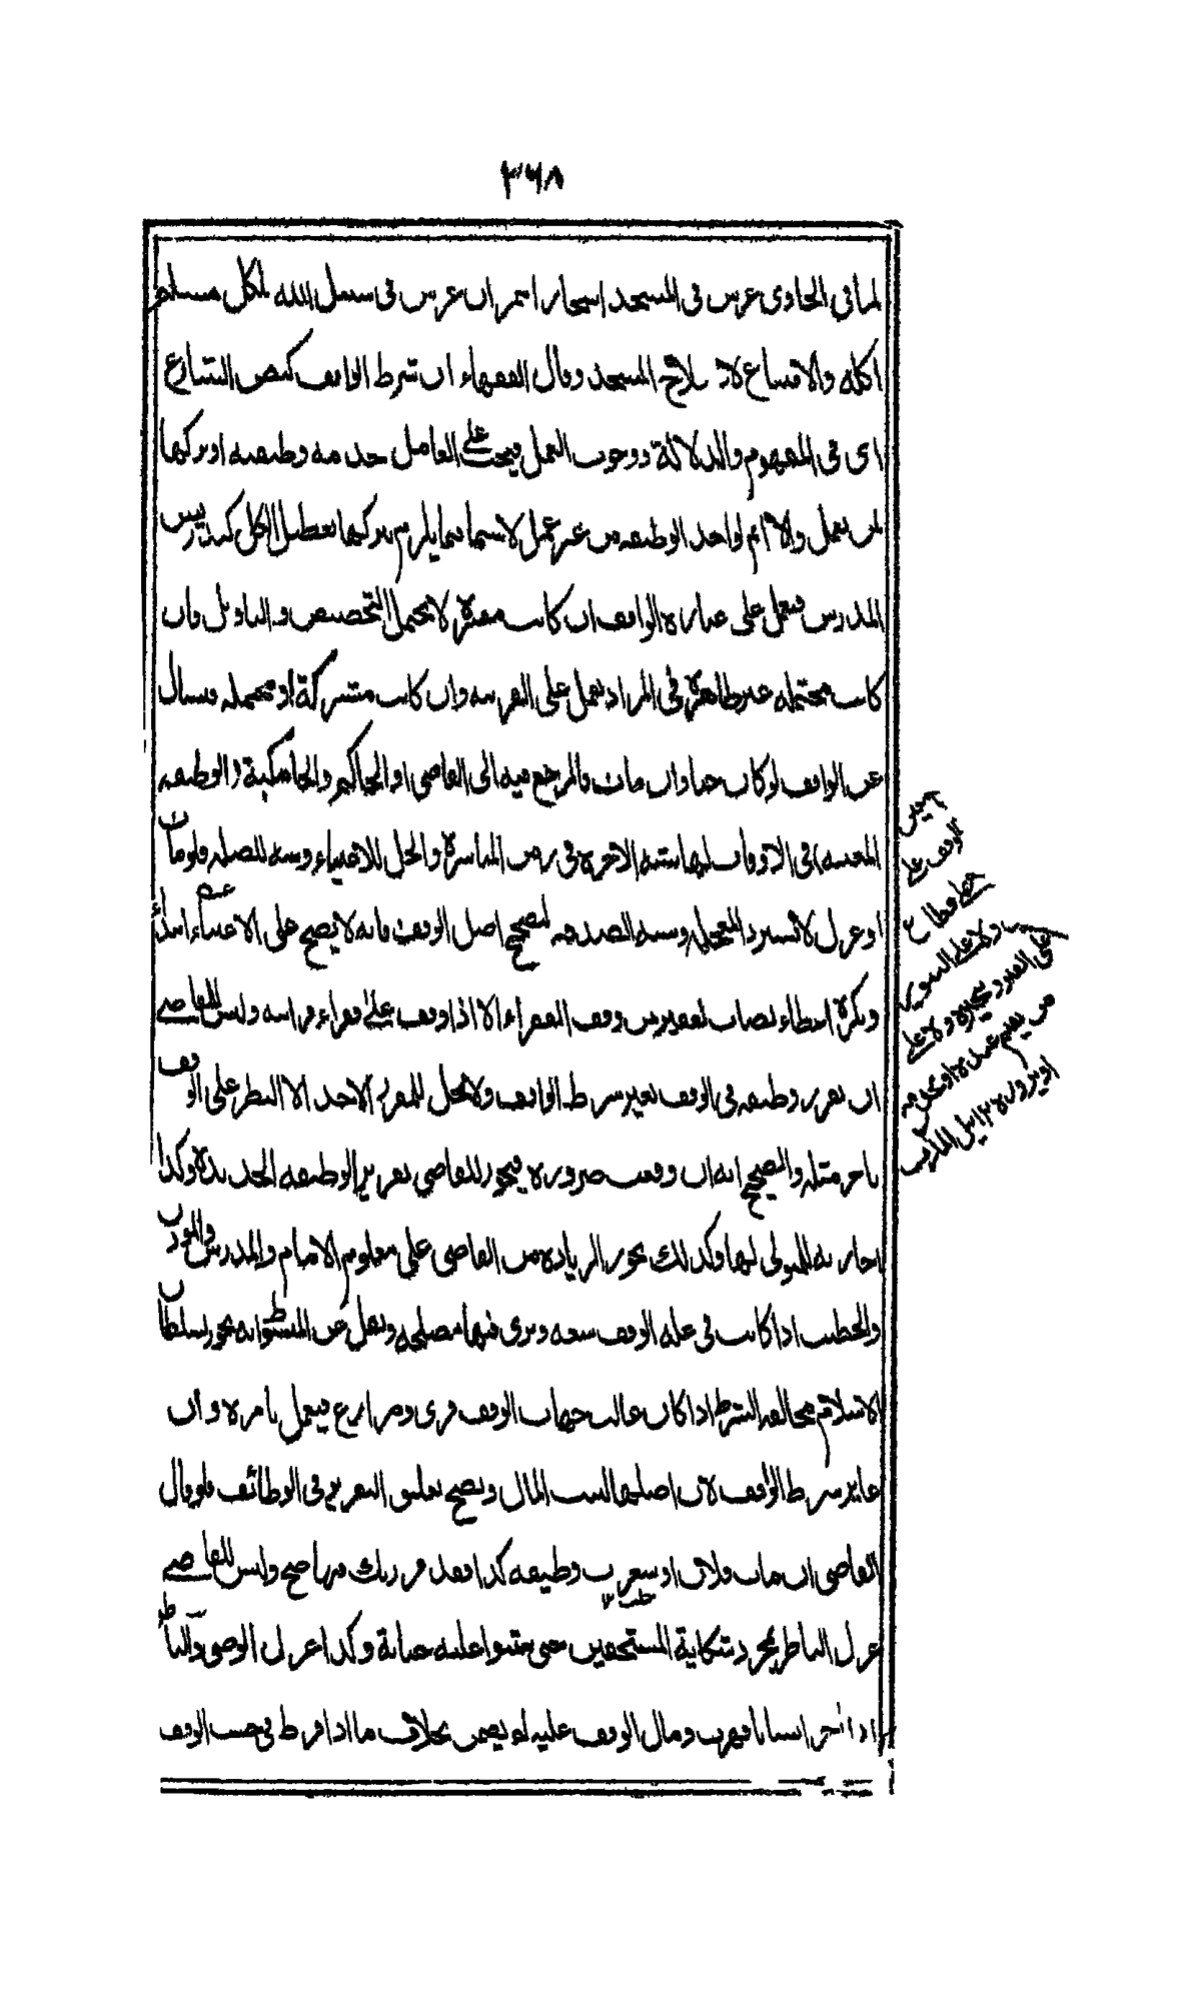 ٣٦٨
لما في الحاوي غرس في المسجد اشجارا تثمر ان غرس في سبيل الله فلكل مسلم
اكله والا فتباع لمصالح المسجد وقال الفقهاء ان شرط الواقف كنص الشارع
اى في المفهوم والدلالة ووجوب العمل فيجب على العامل خدمة وظيفته او تركها
لمن يعمل والا اثم لو اخذ الوظيفة من غير عمل لا سيما فيما يلزم بتركها تعطيل الكل كتدريس
المدرس فيعمل على عبارة الواقف ان كانت مفسرة لا يحتمل التخصيص والتاويل وان
كانت محتملة غير ظاهرة في المراد يعمل على القرينة وان كانت مشتركة او مجملة فيسال
عن الواقف لو كان حيا وان مات فالمرجع فيه الى القاضى او الحاكم والجامكية (الوظيفة
المعينة) في الاوقاف لها شبه الاجرة في زمن المباشرة والحل للاغنياء وشبه للصلة فلو مات
او عزل لا تسترد المعجلة وشبه الصدقة لتصحيح اصل الوقف فانه لا يصح على الاغنياء ابتداء
ويكره اعطاء نصاب لفقير من وقف الفقراء الا اذا وقف على فقراء قرابته وليس للقاضى
ان يقرر وظيفة في الوقف بغير شرط الواقف ولا يحل للمقرر الاخذ الا النظر على الوقف
باجر مثله والصحيح انه ان وقعت ضرورة فيجوز للقاضي تقرير الوظيفة الجديدة وكذا
اجازته للمتولي لها وكذلك يجوز الزيادة من القاضى على معلوم الامام والمدرس والمؤذن
والخطيب اذا كانت في غلة الوقف سعة ويرى فيها مصلحة ونقل عن المبسوط انه يجوز لسلطان
الاسلام مخالفة الشرط اذا كان غالب جهات الوقف قرى ومزارع فيعمل بامره وان
غاير شرط الواقف لان اصلها لبيت المال ويصح تعليق التقرير في الوظائف فلو قال
القاضى ان مات فلان او شغرت وظيفة كذا فقد قررتك فيها صح وليس للقاضى
عزل الناظر بمجرد شكاية المستحقين حتى يثبتوا عليه خيانة وكذا عزل الوصى والناظر
اذا آجر انسانا فهرب ومال الوقف عليه لم يضمن بخلاف ما اذا فرط في خشب الوقف